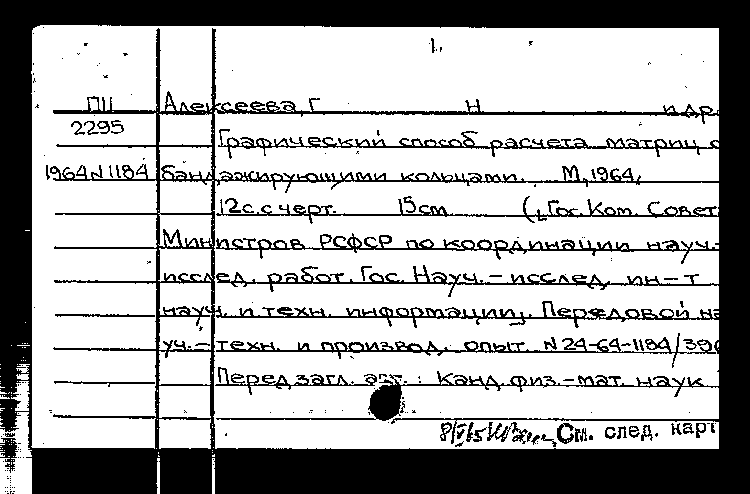 1.
ПII Алексеева, Г Н и др
2295 Графический способ расчета матриц с
1964 N 1184 бандажирующими кольцами. М, 1964,
12с. с черт. 15 см (Гос. Ком. Совет
Министров РСФСР по координации науч.-
исслед. работ. Гос. Науч.-исслед. ин-т
науч. и техн. информации. Передовой на
уч.-техн. и производ. опыт. N 24-64-1184/
Перед загл. авт.: Канд. физ.-мат. наук
См. след. карт